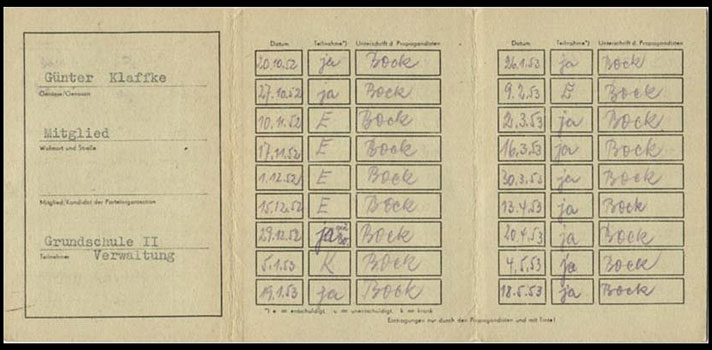 Günter Klaffke
Genosse/Genossin
Mitglied
Wohnort und Straße
Mitglied/Kandidat der Parteiorganisation
Grundschule II
Teilnehmer Verwaltung
Datum Teilnahme*) Unterschrift d. Propagandisten
20.10.52 ja Bock
27.10.52 ja Bock
10.11.52 E Bock
17.11.52 E Bock
1.12.52 E Bock
15.12.52 E Bock
29.12.52 ja Bock
5.1.53 K Bock
19.1.53 ja Bock
*) e = entschuldigt, u = unentschuldigt, k = krank
Datum Teilnahme*) Unterschrift d. Propagandisten
26.1.53 ja Bock
9.2.53 E Bock
2.3.53 ja Bock
16.3.53 ja Bock
30.3.53 ja Bock
13.4.53 ja Bock
20.4.53 ja Bock
4.5.53 ja Bock
18.5.53 ja Bock
Eintragungen nur durch den Propagandisten und mit Tinte!